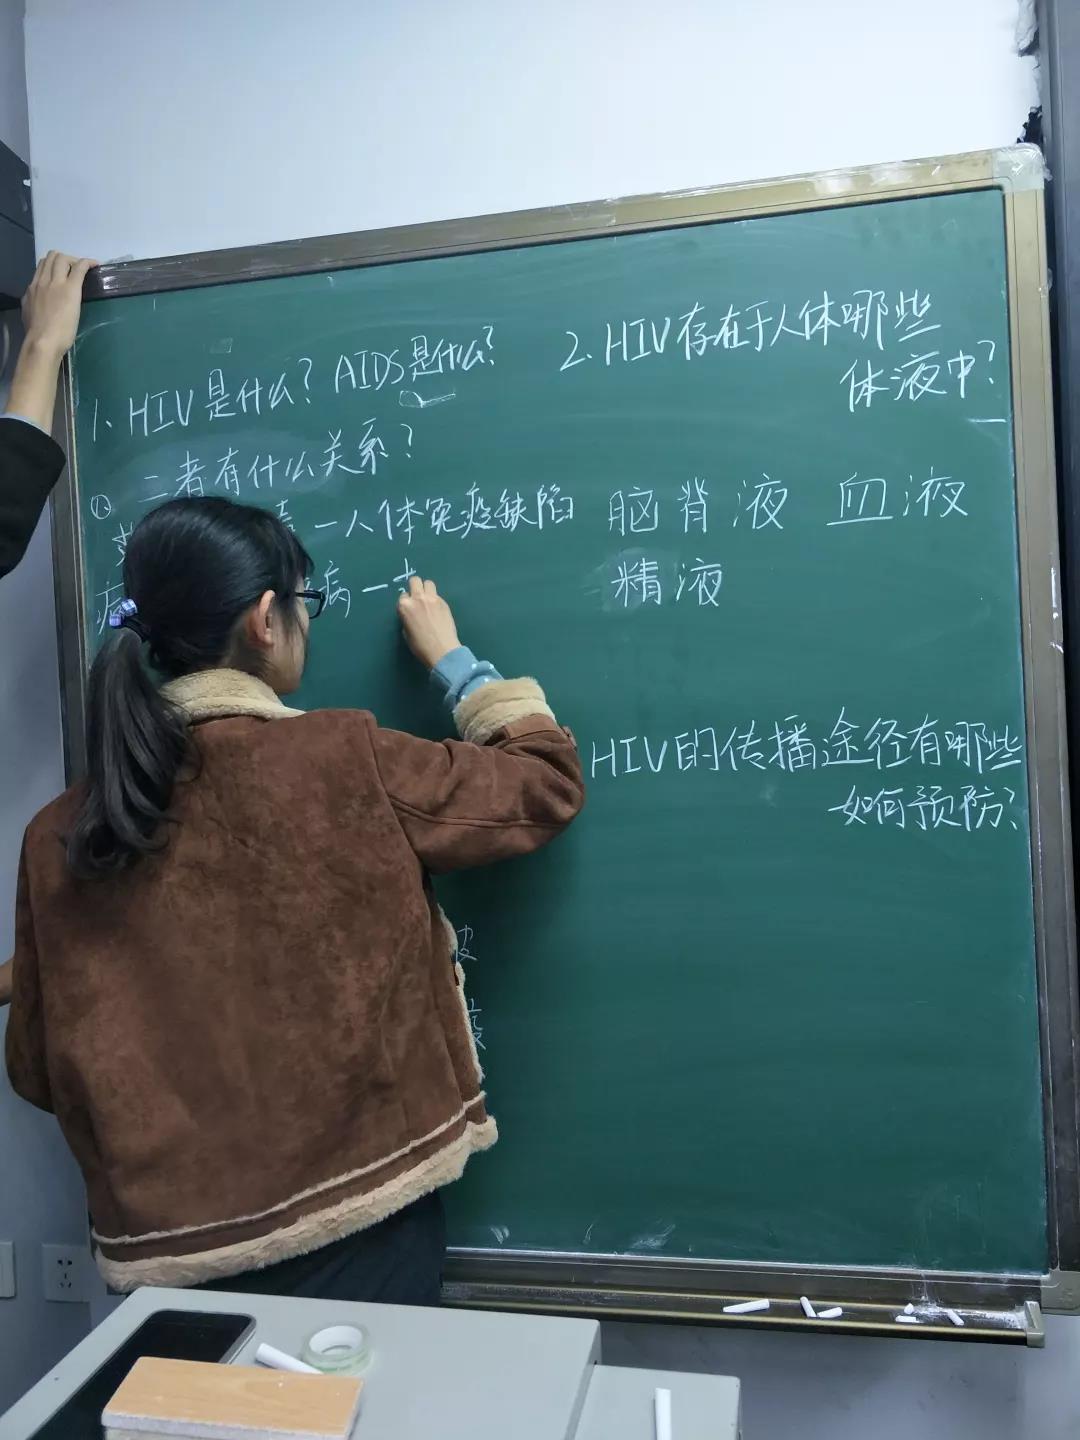 1、HIV是什么？AIDS是什么？
二者有什么关系？
①
一人体免疫缺陷
病一
2、HIV存在于人体哪些
体液中？
脑脊液 血液
精液
HIV的传播途径有哪些
如何预防？